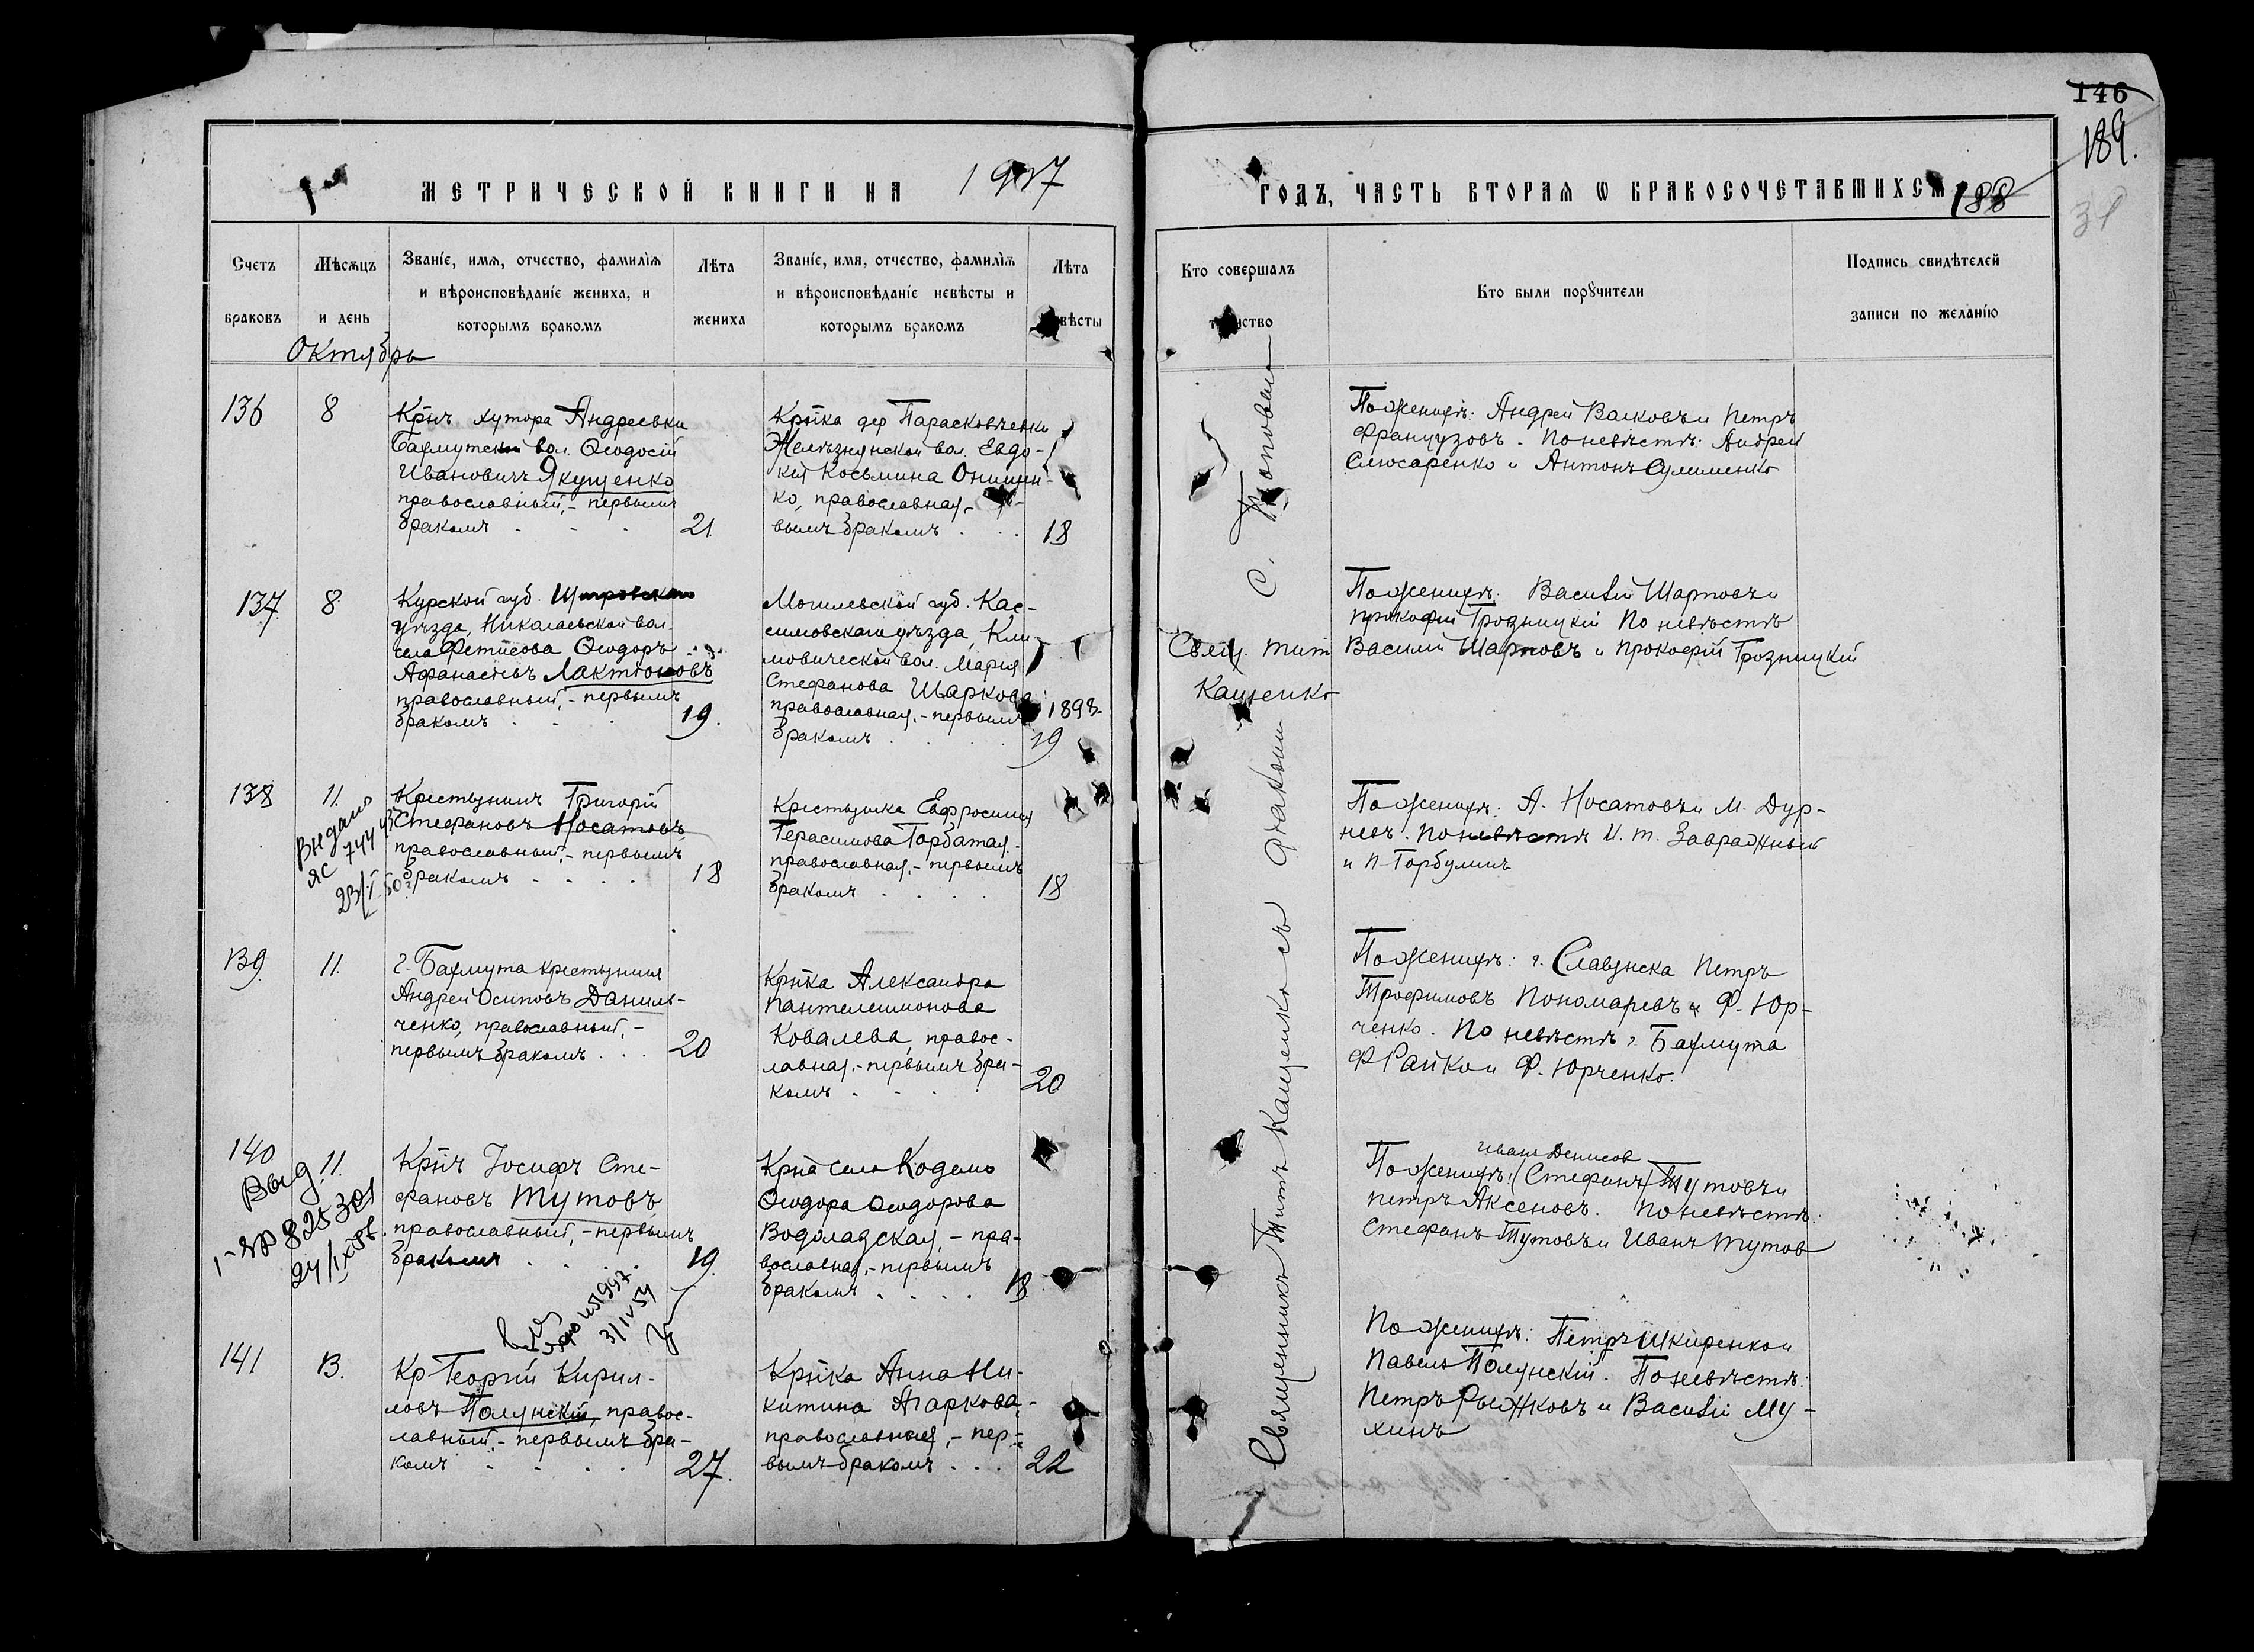 146
189.
188
31
МЕТРИЧЕСКОЙ КНИГИ НА 1917
ГОДЪ, ЧАСТЬ ВТОРАЯ Ѡ БРАКОСОЧЕТАВШИХСЯ
Счетъ браковъ
Мѣсяцъ и день
Званіе, имя, отчество, фамилія
и вѣроисповѣданіе жениха, и
которымъ бракомъ
Лѣта
жениха
Званіе, имя, отчество, фамилія
и вѣроисповѣданіе невѣсты и
которымъ бракомъ
Лѣта
Кто совершалъ
Кто были порꙋчители
Подпись свидѣтелей
записи по желанію
Октября
136
8
Кр͠нъ хутора Андреевки
Бахмутской вол. Ѳеодосій
Ивановичъ Якущенко
православный, - первымъ
бракомъ
21.
Кр͠нка дер Парасковѣевки
Желѣзнянской вол. Евдо-
кія Косьмина Онищен-
ко, православная, -
вымъ бракомъ
18
По женихѣ: Андрей Волковъ и Петръ
Французовъ. По невѣстѣ: Андрей
Слюсаренко и Антонъ Сулименко
137
8.
Курской губ. Щигровскаго
уѣзда, Николаевской вол.
села Фетисова Ѳеодоръ
Афанасіевъ Лактіоновъ
православный, - первымъ
бракомъ
19.
Могилевской губ. Кас-
симовскаго уѣзда, Кли-
мовической вол. Марія
Стефанова Шаркова
православная, - первымъ
бракомъ
1898
19
Свящ. Титъ
Кащенко
По женихѣ: Василій Шарповъ и
Прокофій Грозницкій По невѣстѣ
Василій Шарповъ и Прокофій Грозницкій
138
11.
Крестьянинъ Григорій
Стефановъ Носатовъ
православный, - первымъ
бракомъ
18
Крестьянка Евфросинія
Герасимова Горбатая, -
православная, - первымъ
бракомъ
18
По женихѣ: А. Носатовъ и М. Дур-
невъ. По невѣстѣ И. Т. Завражный
и П. Горбулинъ
139
11.
г. Бахмута крестьянинъ
Андрей Осиповъ Данил-
ченко, православный, -
первымъ бракомъ
20
Кр͠нка Александра
Пантелеимонова
Ковалева, правос-
лавная, - первымъ бра-
комъ
20
По женихѣ: г. Славянска Петръ
Трофимовъ Пономаревъ и Ф. Юр-
ченко. По невѣстѣ г. Бахмута
Ф Райко и Ф. Юрченко.
140
11.
Кр͠нъ Іосифъ Сте-
фановъ Тутовъ
православный, - первымъ
бракомъ
19.
Кр͠нка села Кодемо
Ѳеодора Ѳеодорова
Водолазская, - пра-
вославная, - первымъ
бракомъ
18.
Иванъ Денисов
По женихѣ: (Стефанъ) Тутовъ и
Петръ Аксеновъ. По невѣстѣ:
Стефанъ Тутовъ и Иванъ Тутов
141
13.
Кр Георгій Кирил-
ловъ Полунскій, правос-
лавный, - первымъ бра-
комъ
27.
Кр͠нка Анна Ни-
китина Агаркова, -
православная, - пер-
вымъ бракомъ
22
По женихѣ: Петръ Шкиренко и
Павелъ Полунскій. По невѣстѣ:
Петръ Рыжковъ и Василій Му-
хинъ
Священникъ Титъ Кащенко съ діакономъ С. Поповымъ